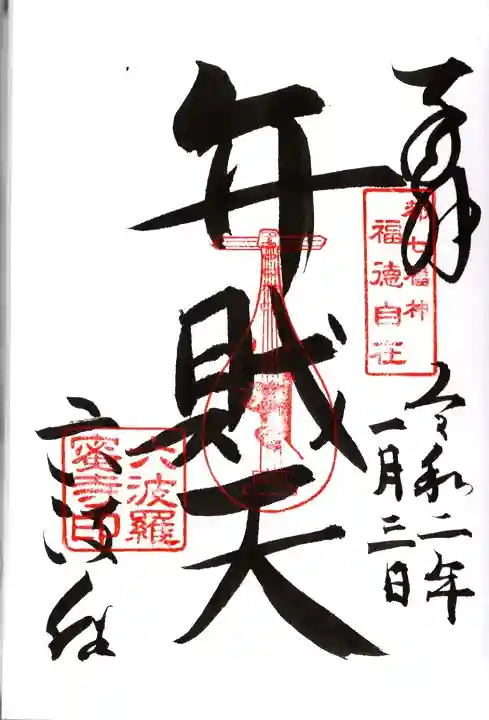 奉拝
都七福神
福徳自在
令和二年
一月三日
弁財天
六波羅
密寺印
六波羅